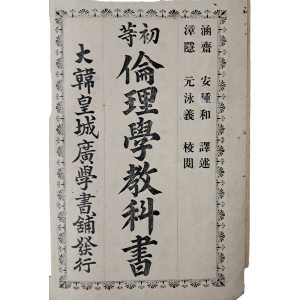 涵齋 安鍾和 譯述
漳隱 元泳義 校閱
初等 倫理學教科書
大韓皇城廣學書舖發行